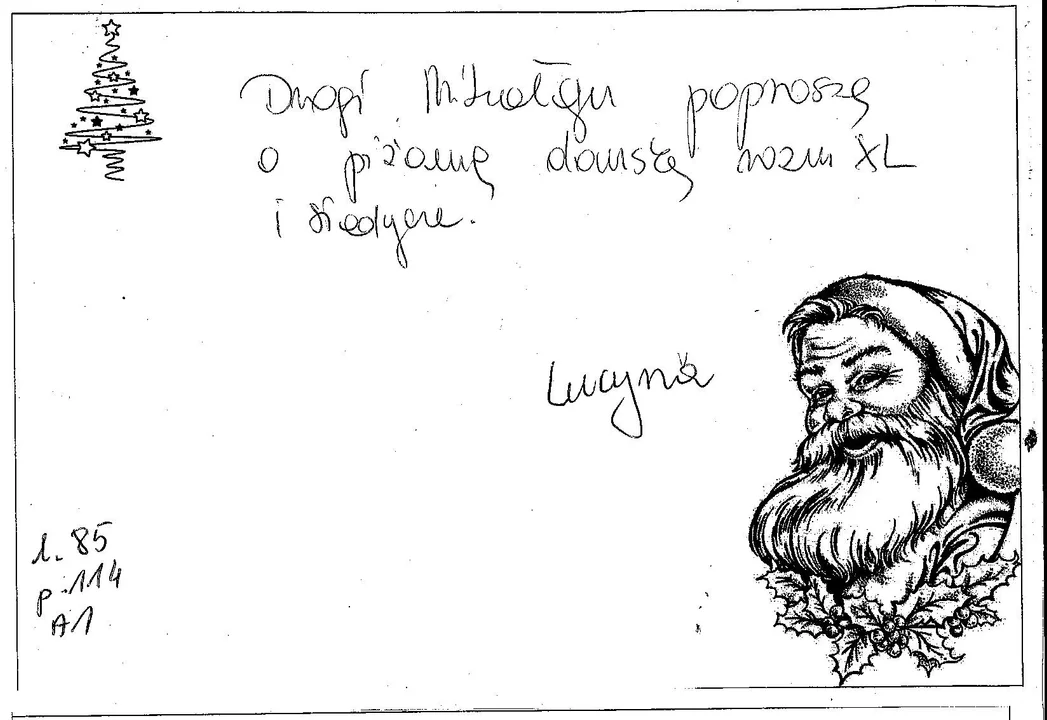 Drogi Mikołaju poproszę
o piżamę damską rozm XL
i słodycze.
Lucyna
l. 85
p. 114
A1